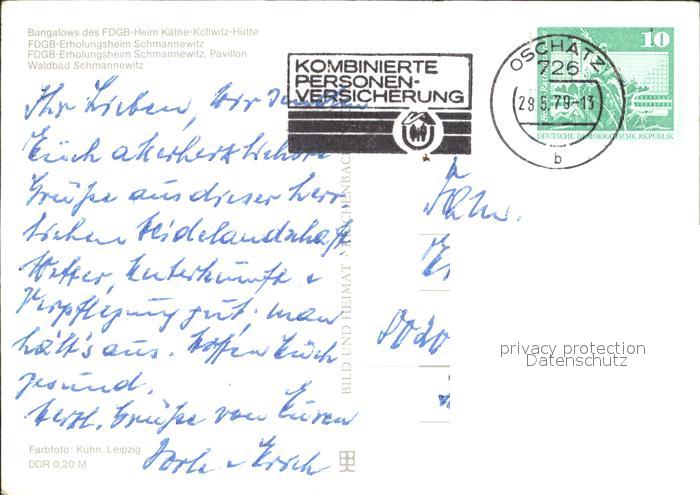 Bungalows des FDGB-Heim Käthe-Kollwitz-Hütte
FDGB-Erholungsheim Schmannewitz
FDGB-Erholungsheim Schmannewitz, Pavillon
Waldbad Schmannewitz
KOMBINIERTE
PERSONEN-
VERSICHERUNG
OSCHATZ
726
29.5.79-13
b
10
DEUTSCHE DEMOKRATISCHE REPUBLIK
Ihr Lieben, wir senden
Euch allerherzlichste
Grüße aus dieser herr-
lichen Heidelandschaft
Wetter, Unterkünfte &
Verpflegung gut, man
hält's aus. Hoffen Euch
gesund.
Herzl. Grüße von Euren
Fam.
BILD UND HEIMAT REICHENBACH
privacy protection
Datenschutz
Farbfoto: Kühn, Leipzig
DDR 0,20 M